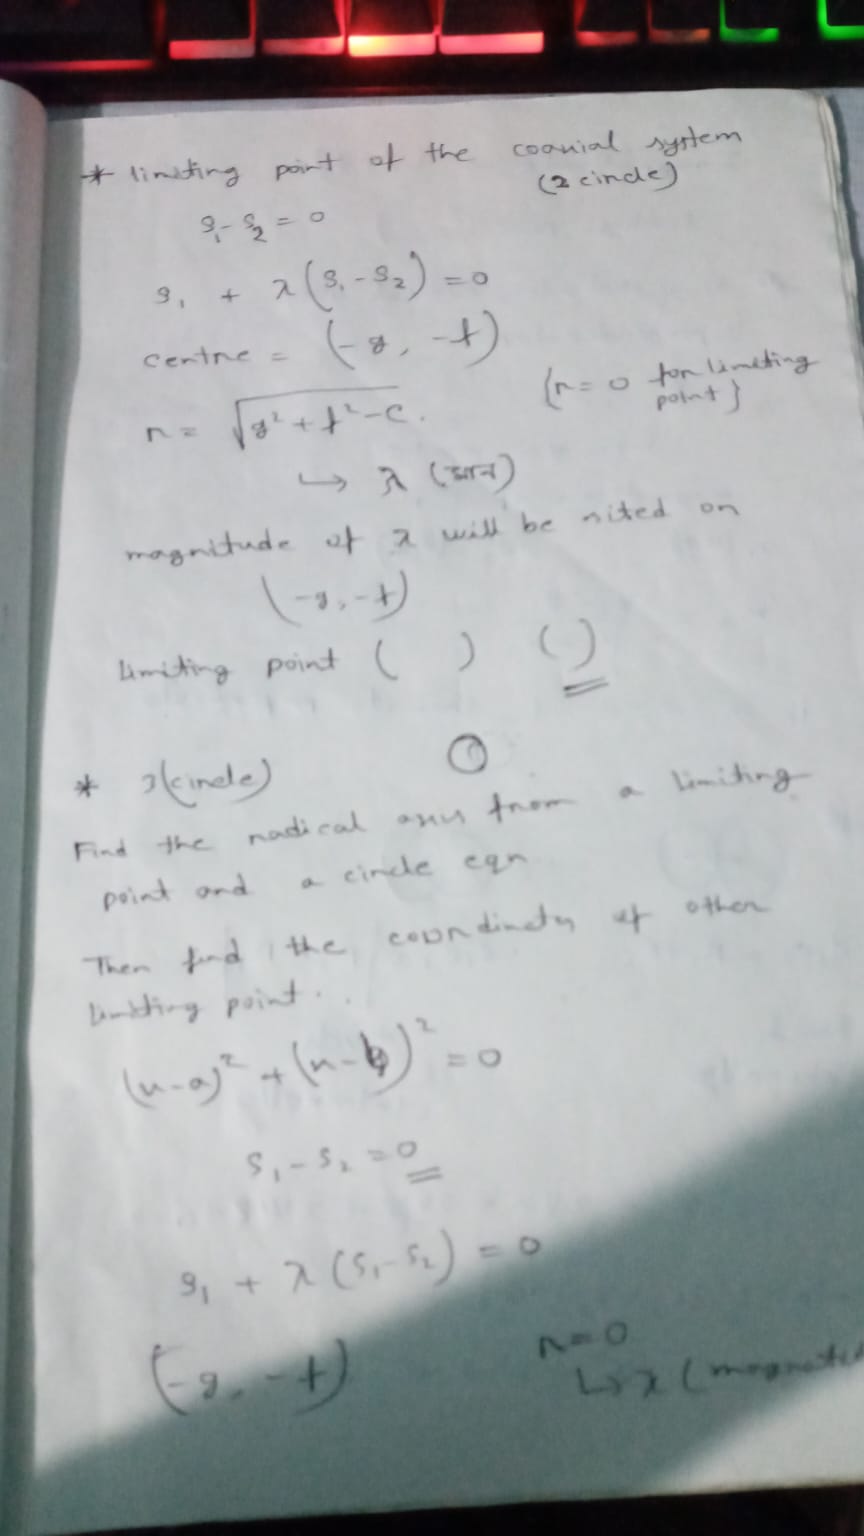 * limiting point of the coaxial system
(2 circle)
S₁ - S₂ = 0
S₁ + λ(S₁ - S₂) = 0
centre = (-g, -f)
r = √g² + f² - c . {r = 0 for limiting point}
↳ λ (मान)
magnitude of λ will be on
(-g, -f)
limiting point ( ) ( )
①
* (circle)
Find the radical axis from a limiting
point and a circle eqn
Then find the coordinates of other
limiting point.
(x-a)² + (x-b)² = 0
S₁ - S₂ = 0
S₁ + λ (S₁ - S₂) = 0
(-g, -f) r = 0
↳ λ (